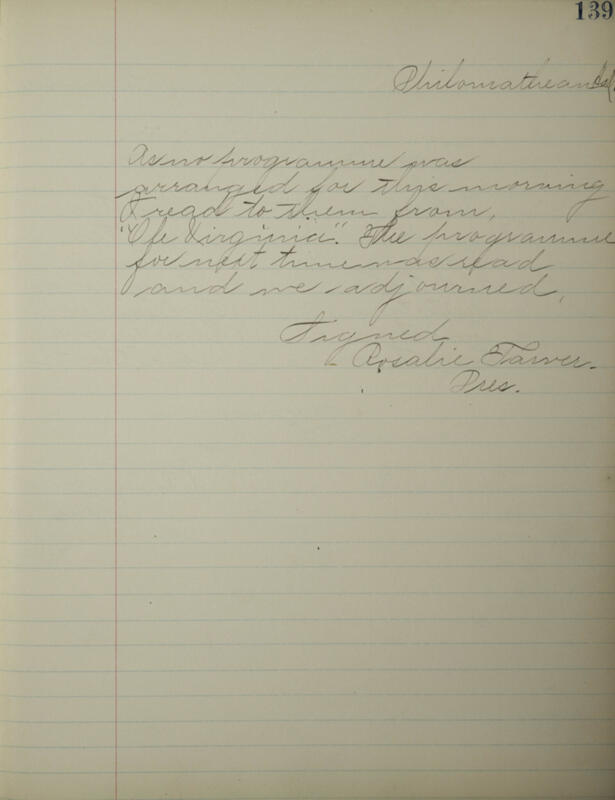 139
Philomathean
As no programme was
arranged for this morning
I read to them from,
"Ole Virginia". The programme
for next time was read
and we adjourned,
Signed
Rosalie Tarver.
Pres.